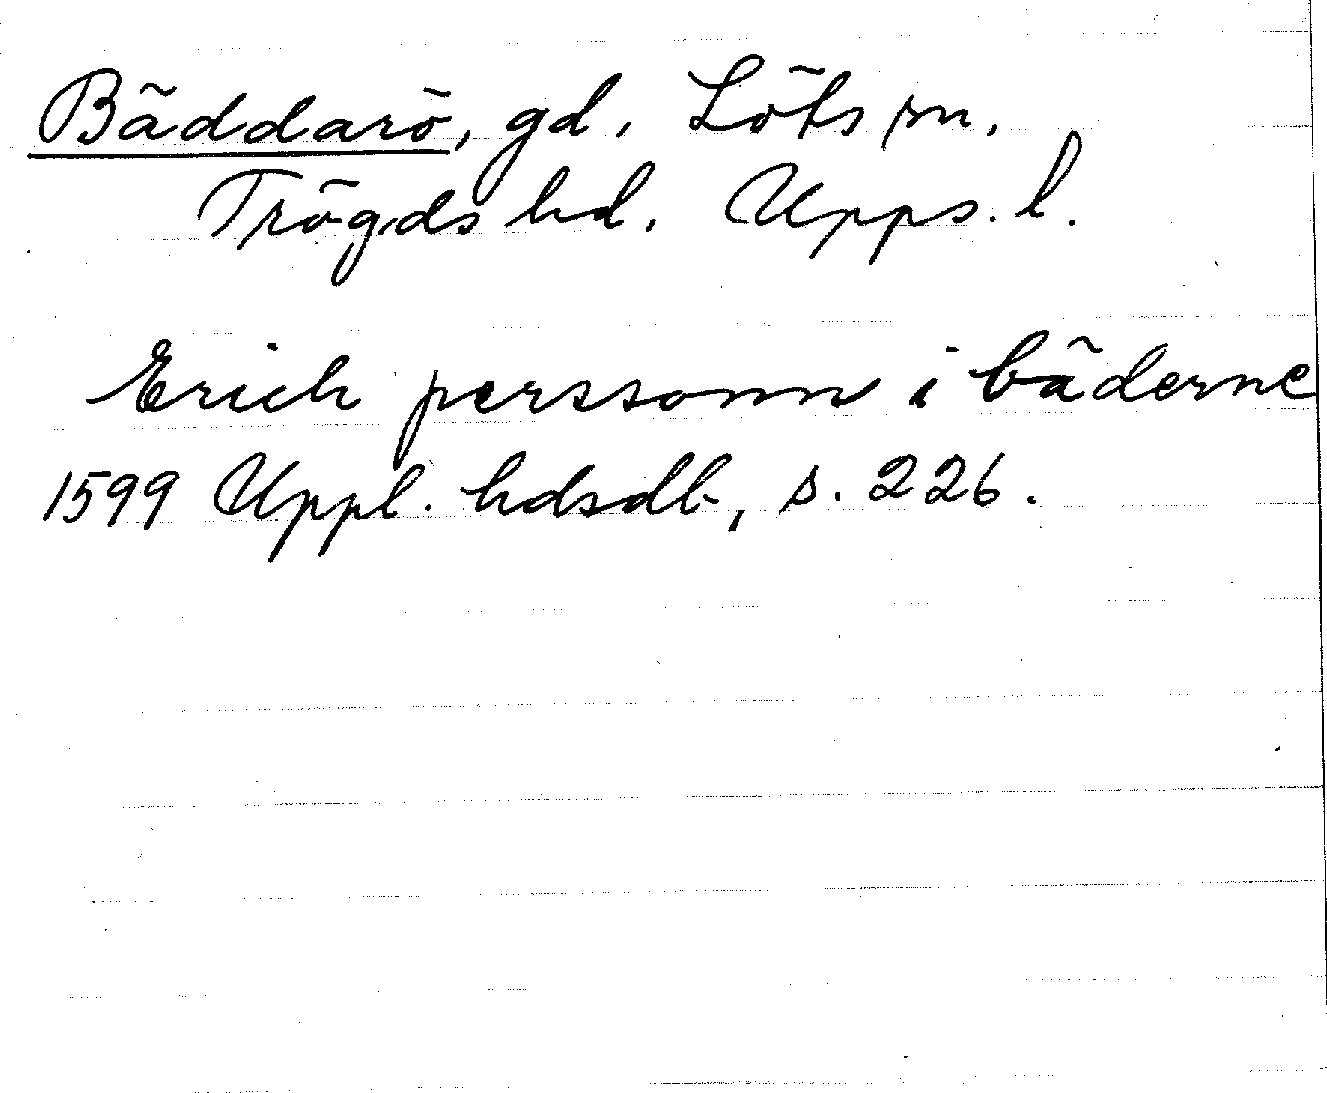 Bäddarö, gd, Löts sn,
Trögds hd. Upps. l.
Erich perssonn i bäderne
1599 Uppl. hdsdb, s. 226.